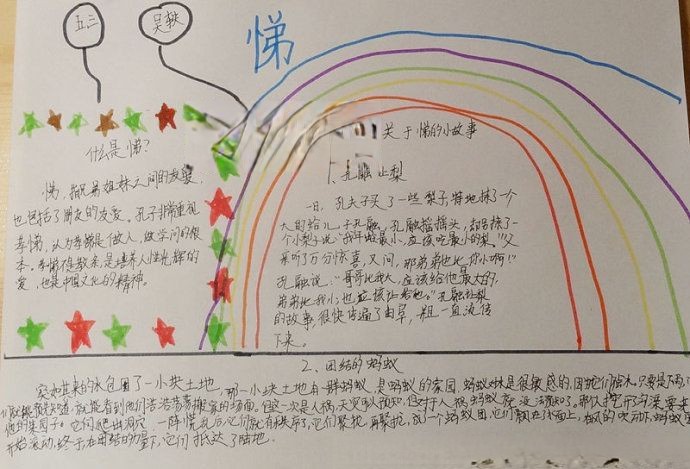 五三
吴轶
悌
什么是悌?
悌,指兄弟姐妹之间的友爱,
也包括了朋友的友爱,孔子非常重视
孝悌,认为孝悌是做人,做学问的根
本。孝悌 是培养人性光辉的
爱,也是中国文化的精神。
关于悌的小故事
1、孔融让梨
一日,孔夫子买了一些梨子,特地拣了一个
大的给儿子孔融,孔融摇摇头,却另拣了
一个小梨说:“我年龄最小,应该吃最小的梨。”父
亲听了万分惊喜,又问,那弟弟也比你小啊!”
孔融说:“哥哥比我大,应该给他最大的,
弟弟比我小,也应该让给他。”孔融让梨
的故事,很快传遍了曲阜,一直流传
下来。
2、团结的蚂蚁
突如其来的水包围了一小块土地,那一小块土地有一群蚂蚁,是蚂蚁的家园,蚂蚁对水是很敏感的,因 只要是下雨,
就知道,就能看到他们浩浩荡荡搬家的场面,但这一次是人祸,天灾可以预知,但对于人祸,蚂蚁就没法预知了。
他们 他们爬出洞穴,一阵慌乱后它们就有秩序了,它们聚拢,再聚拢,成了一个蚂蚁团,它们飘在水面上,
开始滚动,终于,在团结的力量下,它们抵达了陆地。